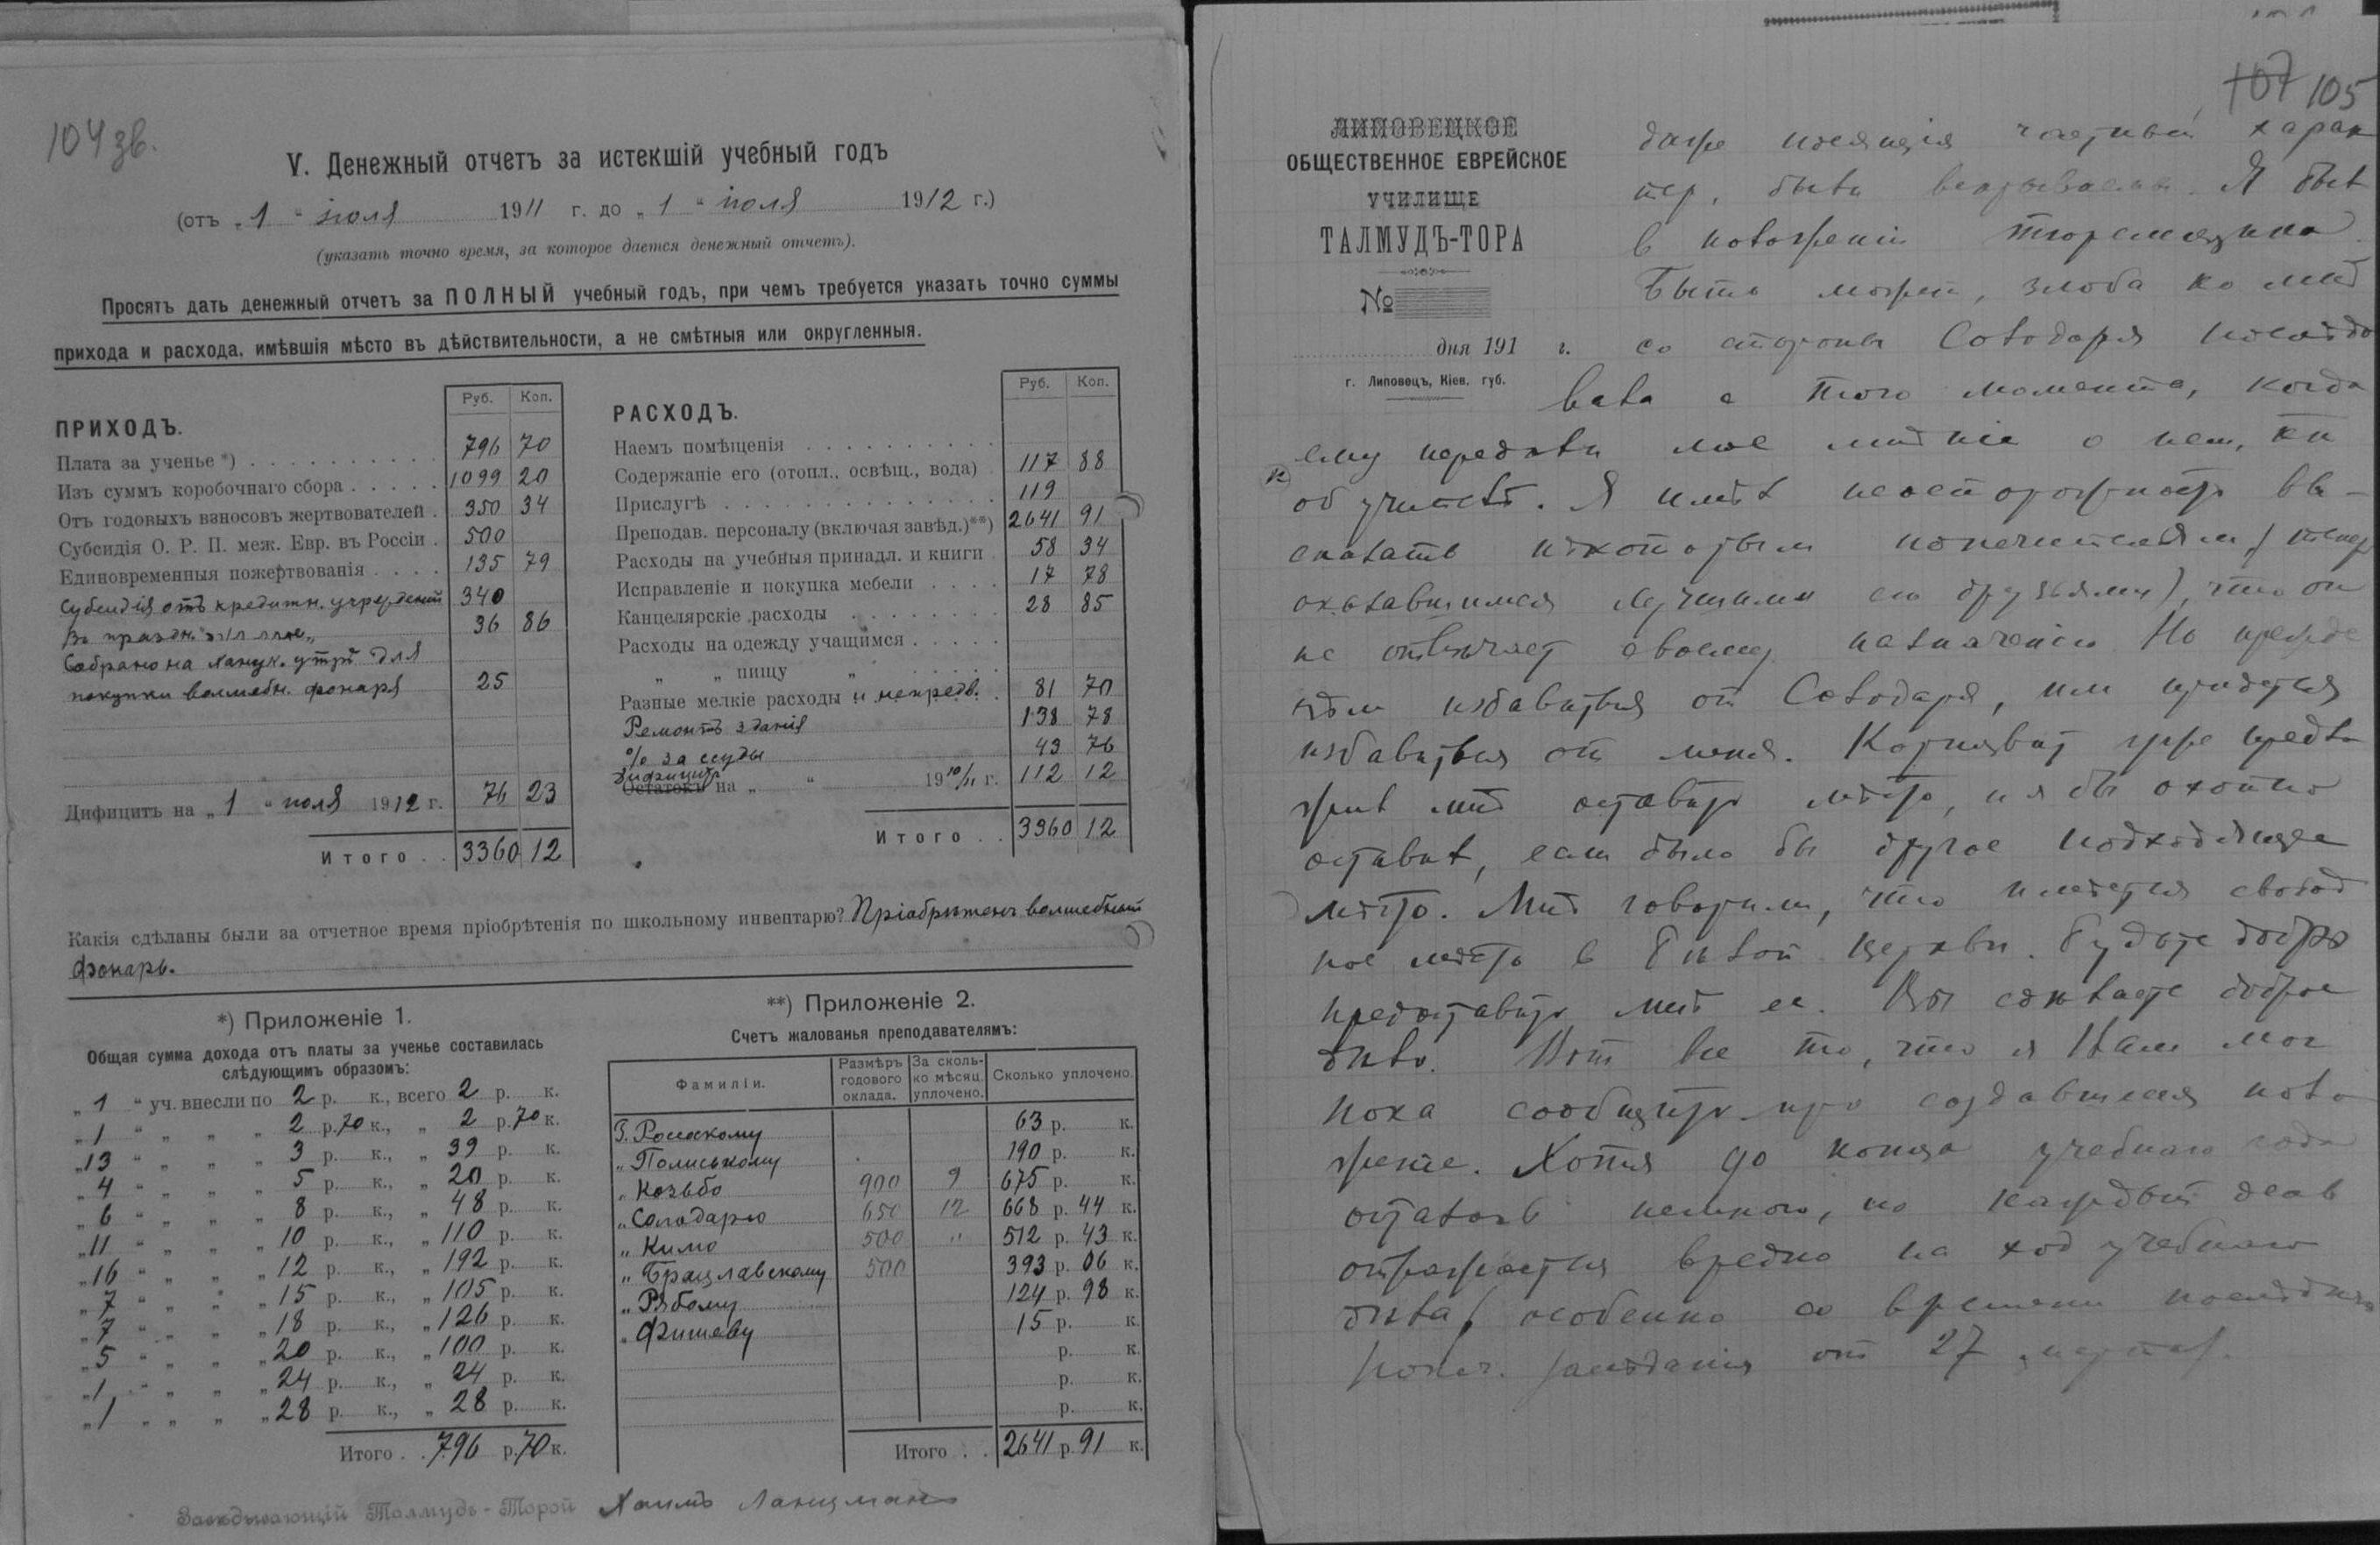 104 зв.
V. Денежный отчетъ за истекшій учебный годъ
(отъ „ 1 “ іюля 1911 г. до „ 1 “ іюля 1912 г.)
(указать точно время, за которое дается денежный отчетъ).
Просятъ дать денежный отчетъ за ПОЛНЫЙ учебный годъ, при чемъ требуется указать точно суммы
прихода и расхода, имѣвшія мѣсто въ дѣйствительности, а не смѣтныя или округленныя.
ПРИХОДЪ. Руб. Коп.
Плата за ученье *) . . . 796 70
Изъ суммъ коробочнаго сбора . . . 1099 20
Отъ годовыхъ взносовъ жертвователей . 350 34
Субсидія О. Р. П. меж. Евр. въ Россіи . 500
Единовременныя пожертвованія . . . 135 79
Субсидія отъ кредитн. учрежденій 340
36 86
Собрано на ханук. утрѣ для
покупки волшебн. фонаря 25
Дифицитъ на „ 1 “ іюля 1912 г. 76 23
Итого . . 3360 12
РАСХОДЪ. Руб. Коп.
Наемъ помѣщенія . . .
Содержаніе его (отопл., освѣщ., вода) . 117 88
Прислугѣ . . . 119
Преподав. персоналу (включая завѣд.)**) 2641 91
Расходы на учебныя принадл. и книги . 58 34
Исправленіе и покупка мебели . . . 17 78
Канцелярскіе расходы . . . 28 85
Расходы на одежду учащимся . . .
„ „ пищу „ . . .
Разные мелкіе расходы и непредв. . 81 70
Ремонтъ зданія 138 78
% за ссуды 43 76
Дифицитъ
Остатокъ на „ “ 1910/11 г. 112 12
Итого . . 3360 12
Какія сдѣланы были за отчетное время пріобрѣтенія по школьному инвентарю? Пріобрѣтенъ волшебный
фонарь.
*) Приложеніе 1.
Общая сумма дохода отъ платы за ученье составилась
слѣдующимъ образомъ:
„ 1 “ уч. внесли по 2 р. к., всего 2 р. к.
„ 1 “ „ „ „ 2 р. 70 к., „ 2 р. 70 к.
„ 13 “ „ „ „ 3 р. к., „ 39 р. к.
„ 4 “ „ „ „ 5 р. к., „ 20 р. к.
„ 6 “ „ „ „ 8 р. к., „ 48 р. к.
„ 11 “ „ „ „ 10 р. к., „ 110 р. к.
„ 16 “ „ „ „ 12 р. к., „ 192 р. к.
„ 7 “ „ „ „ 15 р. к., „ 105 р. к.
„ 7 “ „ „ „ 18 р. к., „ 126 р. к.
„ 5 “ „ „ „ 20 р. к., „ 100 р. к.
„ 1 “ „ „ „ 24 р. к., „ 24 р. к.
„ 1 „ „ „ „ 28 р. к., „ 28 р. к.
Итого . . 796 р. 70 к.
**) Приложеніе 2.
Счетъ жалованья преподавателямъ:
Фамиліи. Размѣръ годового оклада. За сколь-ко мѣсяц. уплочено. Сколько уплочено.
Г. Росскому 63 р. к.
„ Полиському 190 р. к.
„ Козьбо 900 9 675 р. к.
„ Солодарю 650 12 668 р. 44 к.
„ Кимо 500 „ 512 р. 43 к.
„ Брацлавскому 500 393 р. 06 к.
„ Рябому 124 р. 98 к.
„ Фишеву 15 р. к.
р. к.
р. к.
р. к.
Итого . . 2641 р. 91 к.
Завѣдывающій Талмудъ-Торой Хаимъ Ланцманъ
107 105
ЛИПОВЕЦКОЕ
ОБЩЕСТВЕННОЕ ЕВРЕЙСКОЕ
УЧИЛИЩЕ
ТАЛМУДЪ-ТОРА
№
дня 191 г.
г. Липовецъ, Кіев. губ.
даже носящія частный харак
тер, были вскрываемы. Я был
в положеніи тюремщика.
Быть может, злоба ко мнѣ
со стороны Солодаря
с того момента, когда
ему передали мое мнѣніе о нем, как
об учителѣ. Я имѣл неосторожность вы-
сказать нѣкоторым попечителям (тепер
оказавшимся лучшими его друзьями), что он
не отвѣчает своему назначенію. Но прежде
чѣм избавиться от Солодаря, им придется
избавиться от меня. уже предло
жил мнѣ оставить мѣсто, и я бы охотно
оставил, если было бы другое подходящее
мѣсто. Мнѣ говорили, что имѣется свобод
ное мѣсто в Бѣлой Церкви. Будьте добры
предоставить мнѣ ее. Вы сдѣлаете доброе
дѣло. Вот все то, что я Вам мог
пока сообщить про создавшееся поло
женіе. Хотя до конца учебнаго года
осталось немного, но каждый день
отражается вредно на ход учебнаго
дѣла (особенно со времени послѣдняго
попеч. засѣданія от 27 марта).